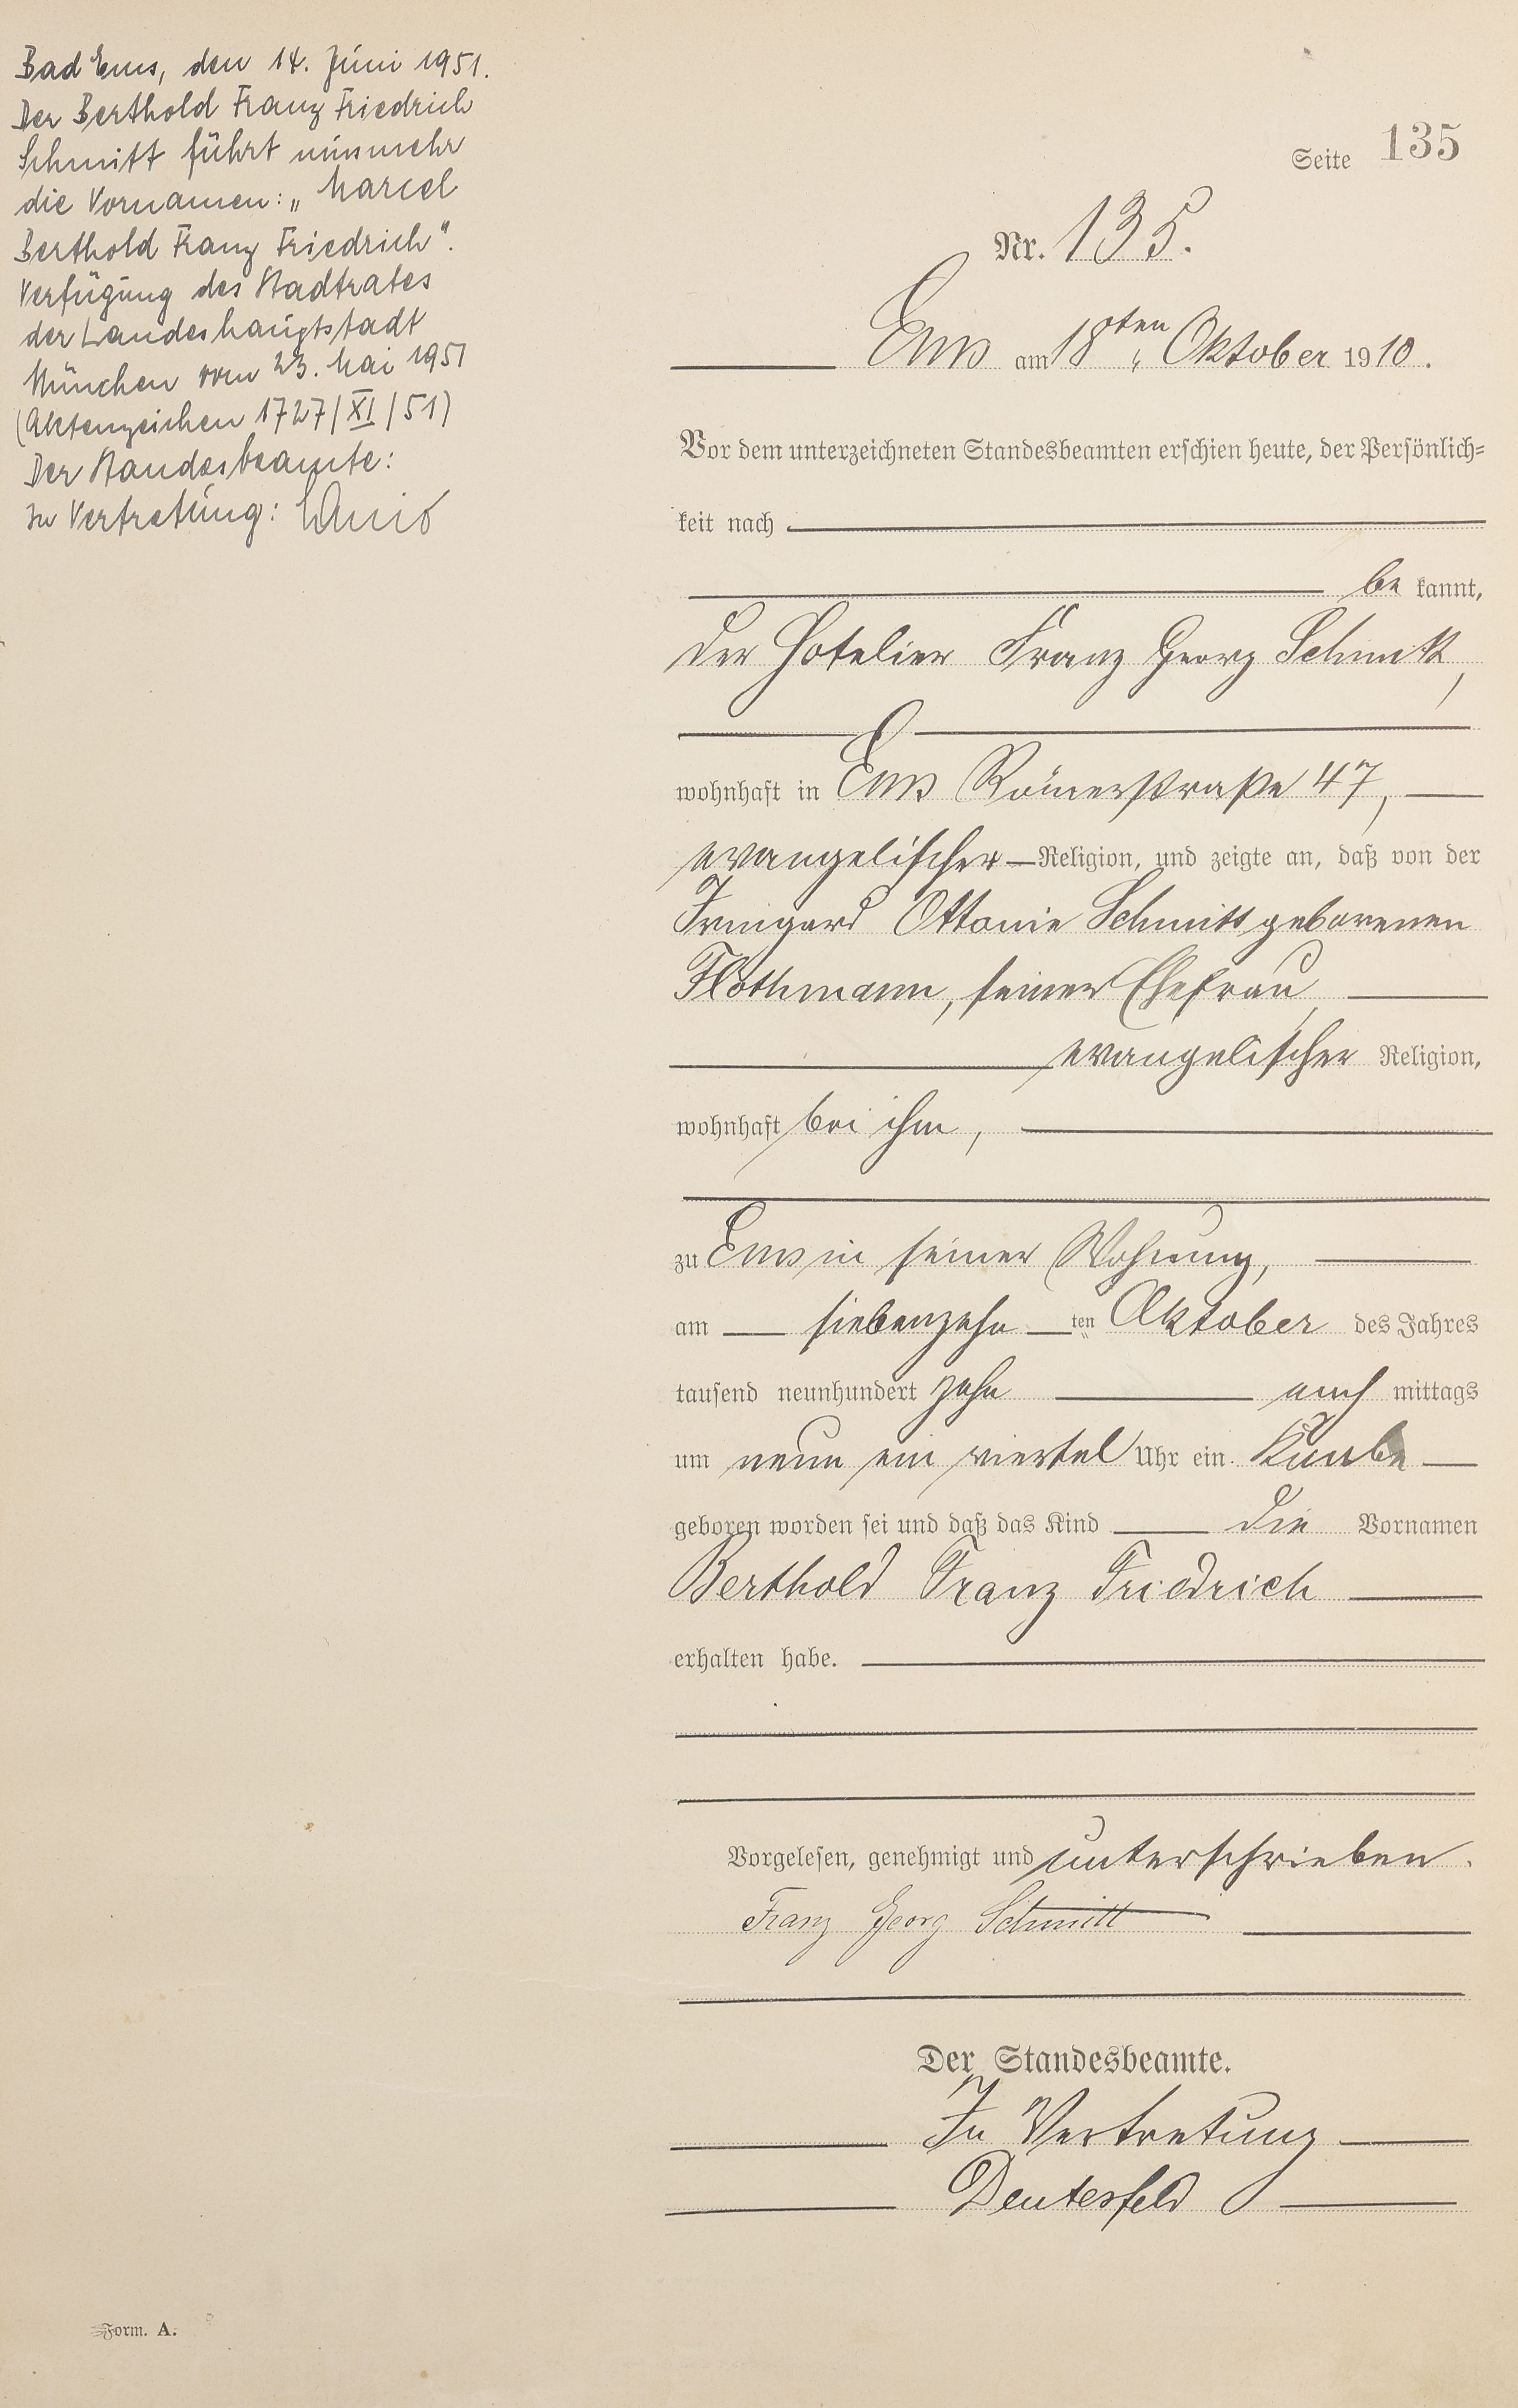 Bad Ems, den 14. Juni 1951.
Der Berthold Franz Friedrich
Schmitt führt nunmehr
die Vornamen: „Marcel
Berthold Franz Friedrich“.
Verfügung des Stadtrates
der Landeshauptstadt
München vom 23. Mai 1951
(Aktenzeichen 1727/XI/51)
Der Standesbeamte:
In Vertretung:
Seite 135
Nr. 135.
Ems am 18ten Oktober 1910.
Vor dem unterzeichneten Standesbeamten erschien heute, der Persönlich-
keit nach
bekannt,
der Hotelier Franz Georg Schmitt,
wohnhaft in Ems Römerstraße 47,
evangelischer Religion, und zeigte an, daß von der
Irmgard Ottonie Schmitt geborenen
Flothmann, seiner Ehefrau,
evangelischer Religion,
wohnhaft bei ihm,
zu Ems in seiner Wohnung,
am siebenzehnten Oktober des Jahres
tausend neunhundert zehn nachmittags
um neun ein viertel Uhr ein Knabe
geboren worden sei und daß das Kind die Vornamen
Berthold Franz Friedrich
erhalten habe.
Vorgelesen, genehmigt und unterschrieben.
Franz Georg Schmitt
Der Standesbeamte.
In Vertretung
Deutesfeld
Form. A.